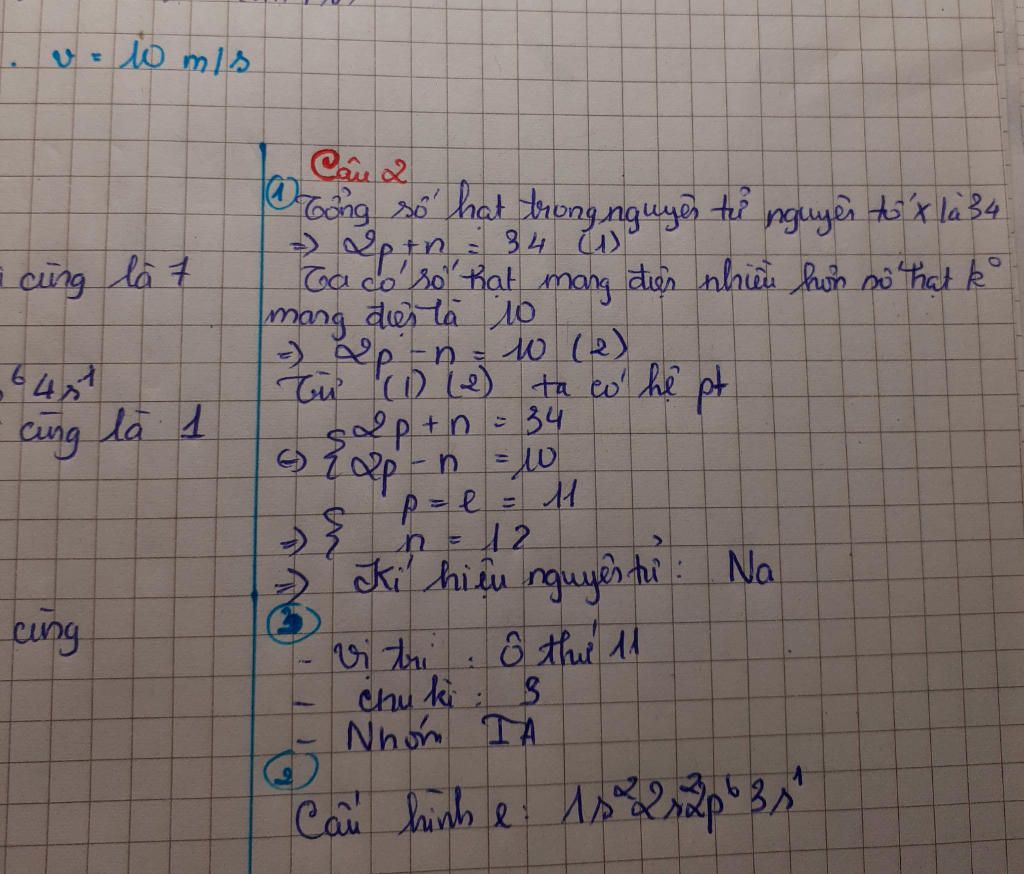 . v = 10 m/s
cùng là 7
⁶ 4s¹
cùng là 1
cùng
Câu 2
① Tổng số hạt trong nguyên tử nguyên tố X là 34
=> 2p+n = 34 (1)
Ta có số hạt mang điện nhiều hơn số hạt k⁰
mang điện là 10
=> 2p - n = 10 (2)
Từ (1) (2) ta có hệ pt
{ 2p + n = 34
<=> { 2p - n = 10
{ p = e = 11
=> { n = 12
=> Kí hiệu nguyên tử : Na
③
- Vị trí : Ô thứ 11
- chu kì : 3
- Nhóm IA
②
Cấu hình e : 1s²2s²2p⁶3s¹